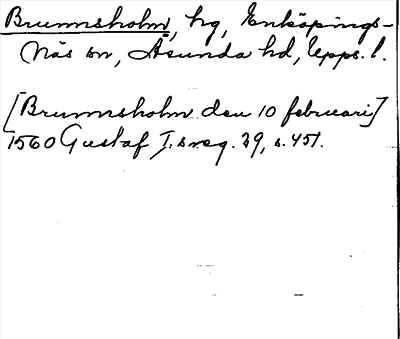 Brunnsholm, hg, Enköpings-
Näs sn, Åsunda hd, Upps. l.
[Brunnsholm den 10 februari]
1560 Gustaf I:s reg. 29, s. 451.